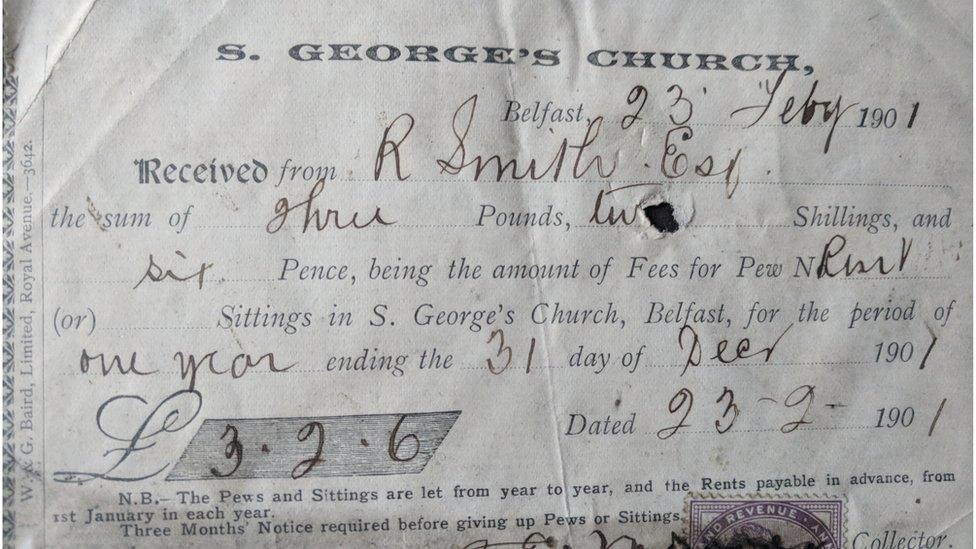 S. GEORGE'S CHURCH,
Belfast, 23 Feby 1901
Received from R Smith Esq
the sum of three Pounds, two Shillings, and
six Pence, being the amount of Fees for Pew N Rent
(or) Sittings in S. George's Church, Belfast, for the period of
one year ending the 31 day of Decr 1901
£3.2.6
Dated 23-2- 1901
N.B.— The Pews and Sittings are let from year to year, and the Rents payable in advance, from
1st January in each year.
Three Months' Notice required before giving up Pews or Sittings.
ND REVENUE
Collector.
W. & G. Baird, Limited, Royal Avenue.—3642.